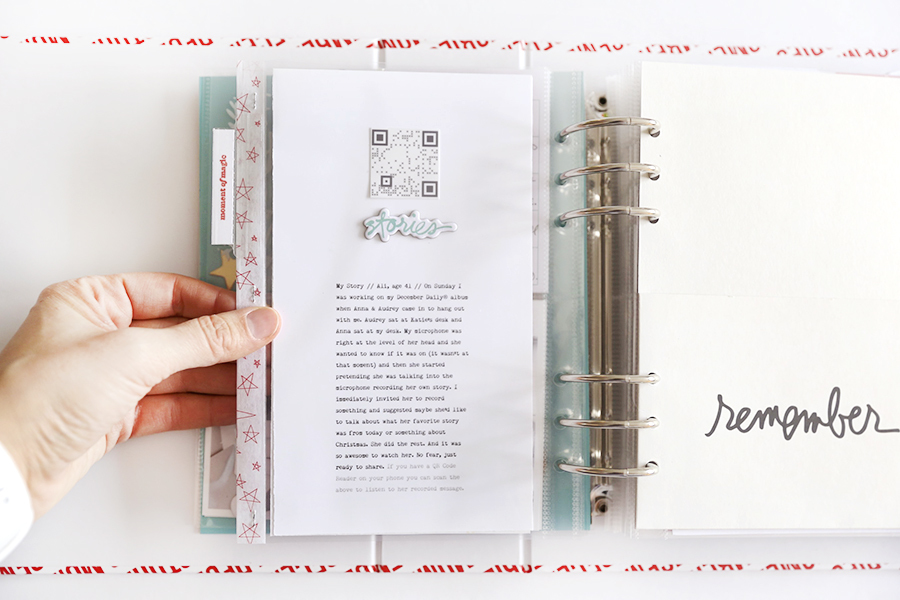 moment of magic
stories
My Story // Ali, age 41 // On Sunday I
was working on my December Daily® album
when Anna & Audrey came in to hang out
with me. Audrey sat at Katie's desk and
Anna sat at my desk. My microphone was
right at the level of her head and she
wanted to know if it was on (it wasn't at
that moment) and then she started
pretending she was talking into the
microphone recording her own story. I
immediately invited her to record
something and suggested maybe she'd like
to talk about what her favorite story
was from today or something about
Christmas. She did the rest. And it was
so awesome to watch her. No fear, just
ready to share. If you have a QR Code
Reader on your phone you can scan the
above to listen to her recorded message.
remember